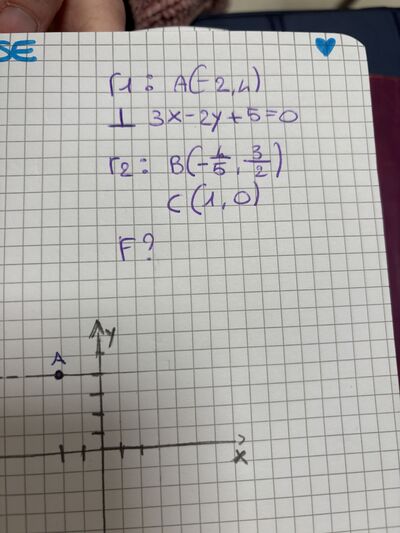 SE
r1: A(-2,4)
⊥ 3x-2y+5=0
r2: B(-4/5, 3/2)
C(1,0)
F?
y
A
x